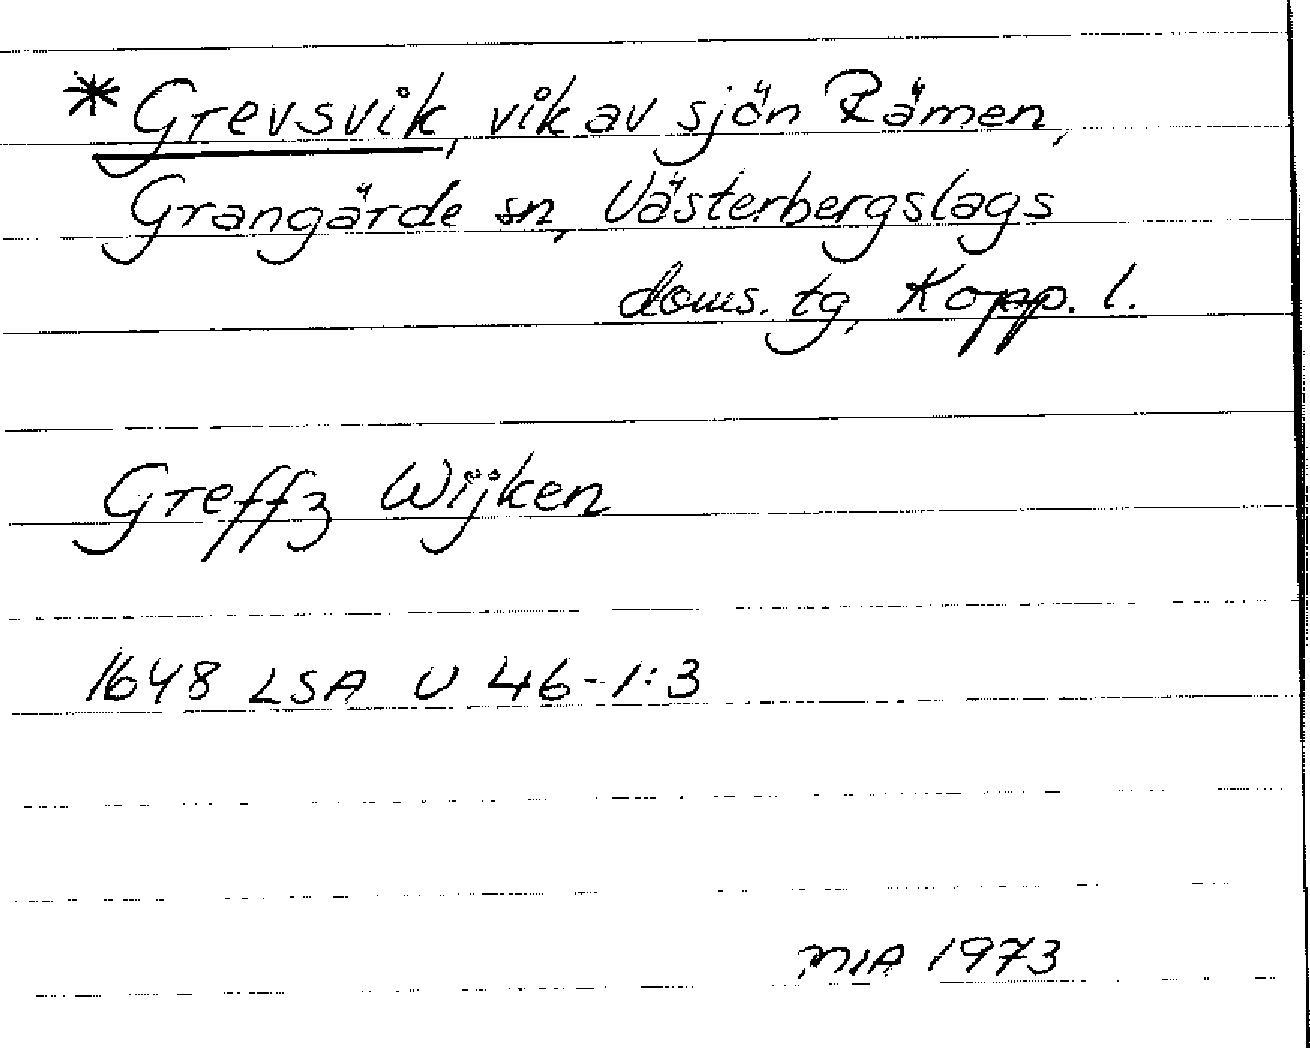 *Grevsvik, vik av sjön Rämen,
Grangärde sn, Västerbergslags
doms. tg, Kopp. l.
Greffz Wijken
1648 LSA U 46-1:3
MIA 1973